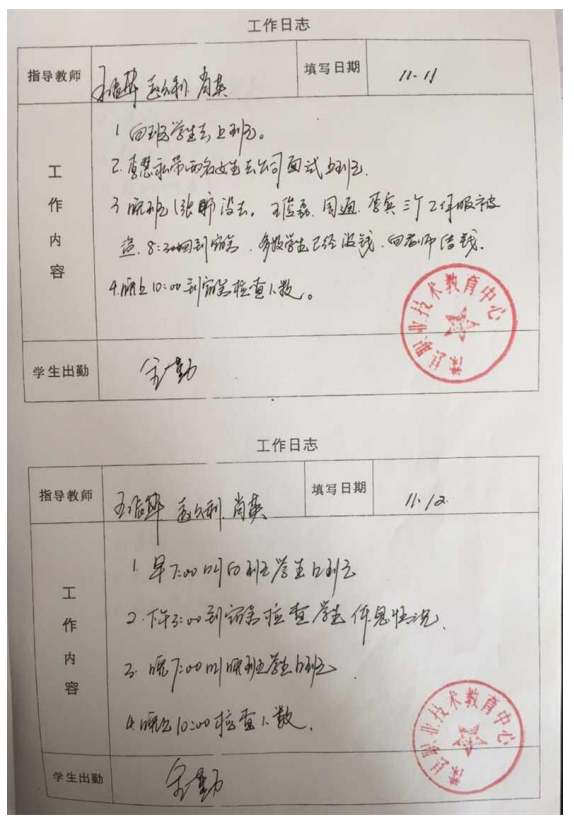 工作日志
指导教师
填写日期 11.11
工作内容
1 白班学生去上班。
2. 李慧私带两名女生去公司面试上班
3 晚班1张帅没去。王俊磊、周通、李宾三个工作服被
盗. 8:30回到宿舍. 多数学生已经没钱. 向老师借钱.
4.晚上10:00到宿舍检查人数。
学生出勤 全勤
职业技术教育中心
工作日志
指导教师
填写日期 11.12
工作内容
1. 早7:00叫白班学生上班
2. 下午3:00到宿舍检查学生休息情况.
3. 晚7:00叫晚班学生上班
4.晚上10:00检查人数.
学生出勤 全勤
职业技术教育中心